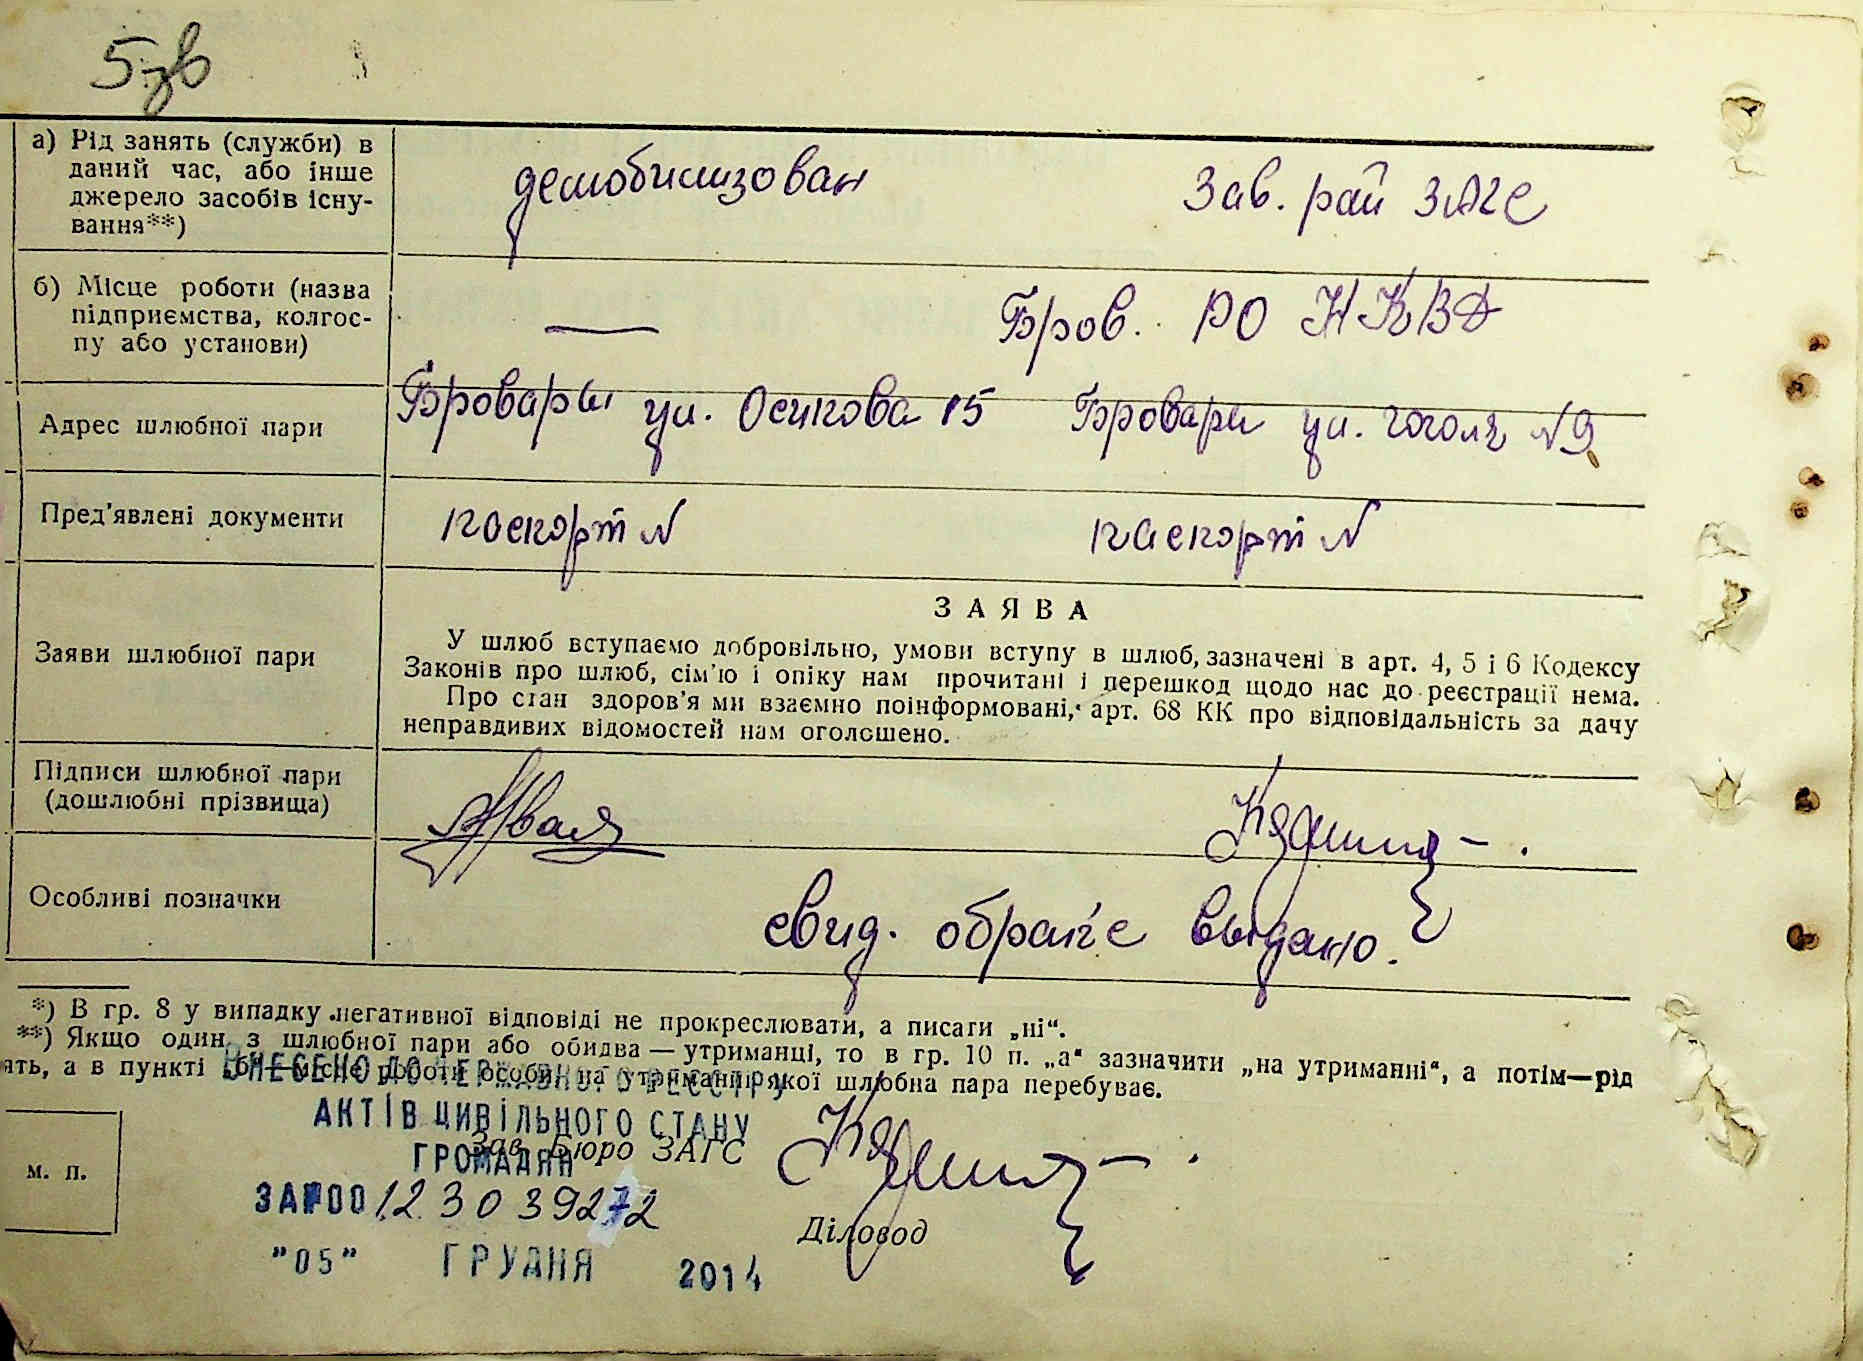 5зв
а) Рід занять (служби) в
даний час, або інше
джерело засобів існу-
вання**)
демобилизован Зав. рай ЗАГС
б) Місце роботи (назва
підприємства, колгос-
пу або установи)
— Бров. РО НКВД
Адрес шлюбної пари
Бровары ул. Осипова 15 Бровари ул. Гоголя №9
Пред'явлені документи
паспорт № паспорт №
Заяви шлюбної пари
ЗАЯВА
У шлюб вступаємо добровільно, умови вступу в шлюб, зазначені в арт. 4, 5 і 6 Кодексу
Законів про шлюб, сім'ю і опіку нам прочитані і перешкод щодо нас до реєстрації нема.
Про стан здоров'я ми взаємно поінформовані, арт. 68 КК про відповідальність за дачу
неправдивих відомостей нам оголошено.
Підписи шлюбної пари
(дошлюбні прізвища)
Особливі позначки
свид. обраке выдано.
*) В гр. 8 у випадку негативної відповіді не прокреслювати, а писати „ні“.
**) Якщо один з шлюбної пари або обидва — утриманці, то в гр. 10 п. „а“ зазначити „на утриманні“, а потім—рід
ять, а в пункті „б“—місце роботи особи, на утриманні якої шлюбна пара перебуває.
ВНЕСЕНО ДО ДЕРЖАВНОГО РЕЄСТРУ
АКТІВ ЦИВІЛЬНОГО СТАНУ
ГРОМАДЯН
Зав. Бюро ЗАГС
м. п.
ЗА №00123039272
Діловод
"05" ГРУДНЯ 2014